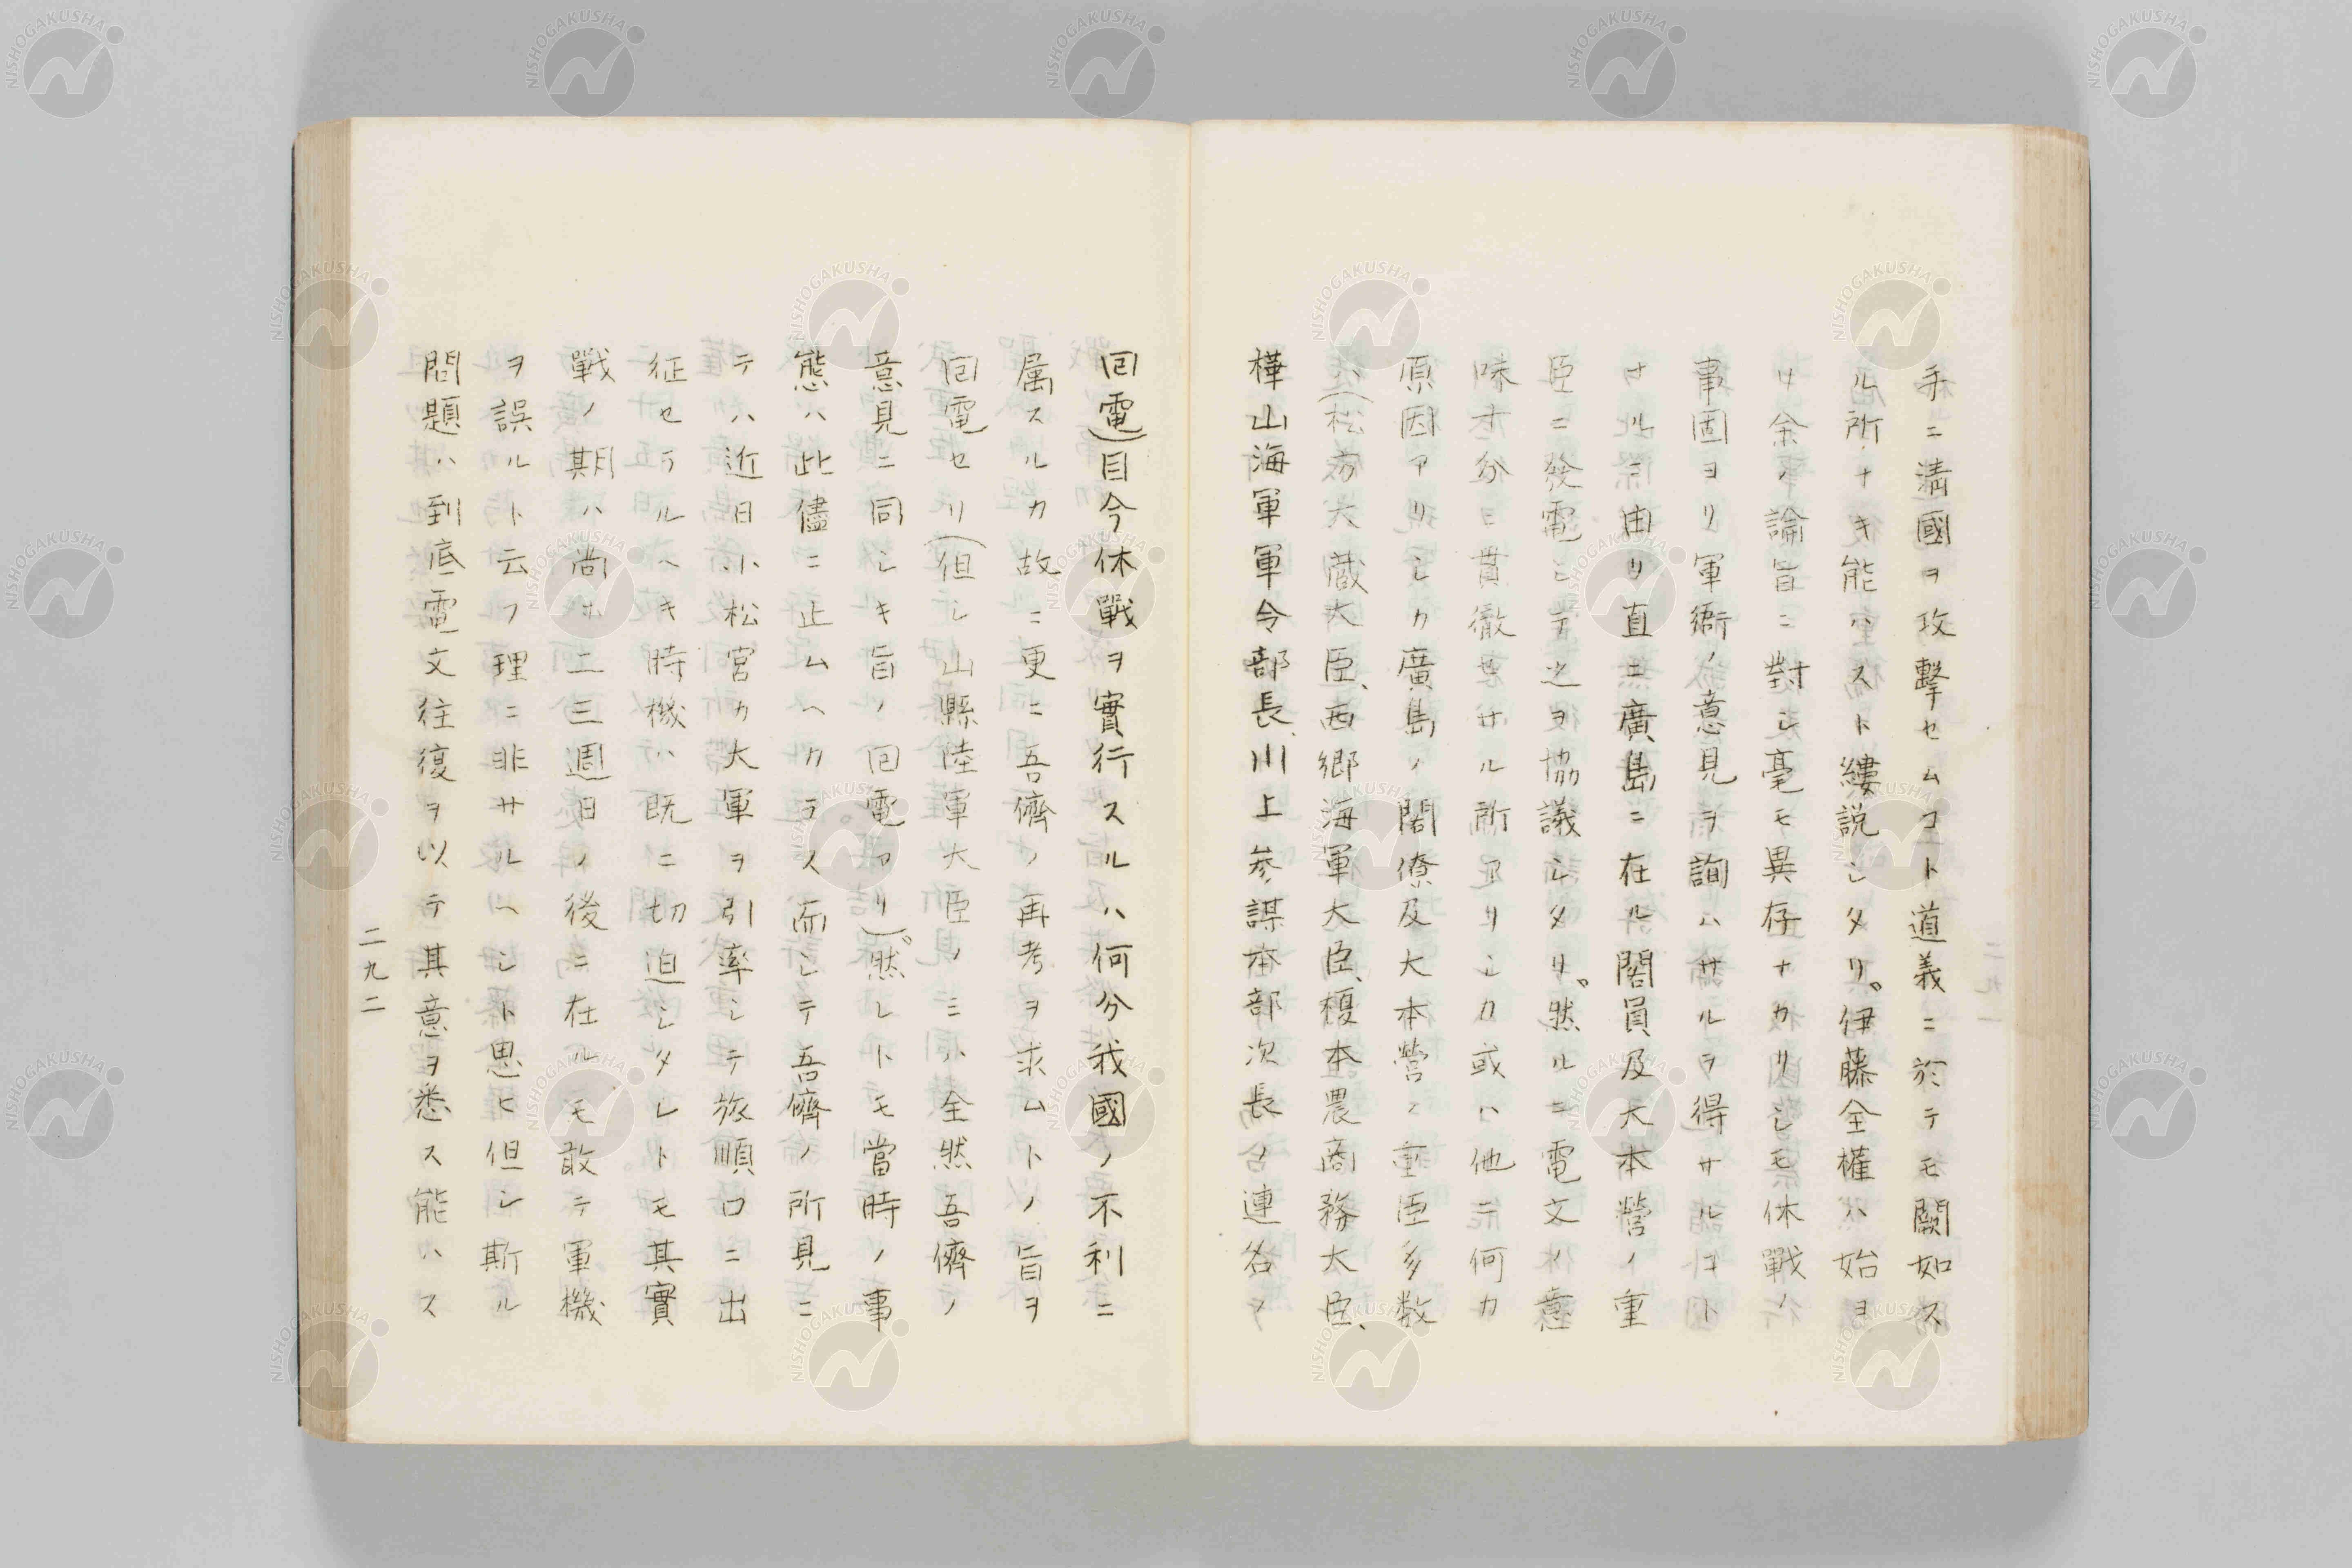 手ニ清國ヲ攻擊セムコト道義ニ於テモ闕如ス
ル所ナキ能ハスト縷説シタリ。伊藤全權ハ始ヨ
リ余ノ論旨ニ對シ毫モ異存ナカリシモ休戰ノ
事固ヨリ軍衙ノ意見ヲ詢ハサルヲ得サルコト
ナルニ由リ直ニ廣島ニ在ル閣員及大本營ノ重
臣ニ發電シテ之ヲ協議シタリ。然ルニ電文ノ意
味十分ニ貫徹セサル所アリシカ或ハ他ニ何カ
原因アリシカ廣島ノ閣僚及大本營ノ重臣多数
ハ(松方大蔵大臣、西郷海軍大臣、榎本農商務大臣、
樺山海軍軍令部長、川上参謀本部次長ノ連名ノ
回電)目今休戰ヲ實行スルハ何分我國ノ不利ニ
属スルカ故ニ更ニ吾儕ノ再考ヲ求ムトノ旨ヲ
回電セリ(但シ山縣陸軍大臣ノミハ全然吾儕ノ
意見ニ同シキ旨ノ回電アリ)。然レトモ當時ノ事
態ハ此儘ニ止ムヘカラス而シテ吾儕ノ所見ニ
テハ近日小松宮カ大軍ヲ引率シテ旅順口ニ出
征セラルヘキ時機ハ既ニ切迫シタレトモ其實
戰ノ期ハ尚ホ二三週日ノ後ニ在ルモ敢テ軍機
ヲ誤ルト云フ理ニ非サルヘシト思ヒ但シ斯ル
問題ハ到底電文往復ヲ以テ其意ヲ悉ス能ハス
二九二
NISHOGAKUSHA